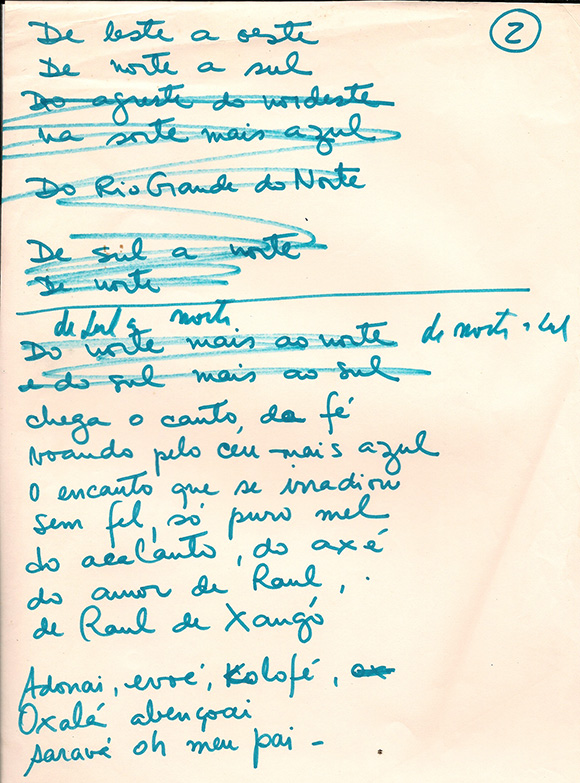 2
De leste a oeste
De norte a sul
Do agreste do nordeste
na sorte mais azul
Do Rio Grande do Norte
De sul a norte
De norte
de sul a norte
Do norte mais ao norte de norte a sul
e do sul mais ao sul
chega o canto da fé
voando pelo ceu mais azul
O encanto que se irradiou
sem fel, só puro mel
do acalanto, do axé
do amor de Raul,
de Raul de Xangó
Adonai, evoé, Kolofé, ox
Oxalá abençoai
saravá oh meu pai -